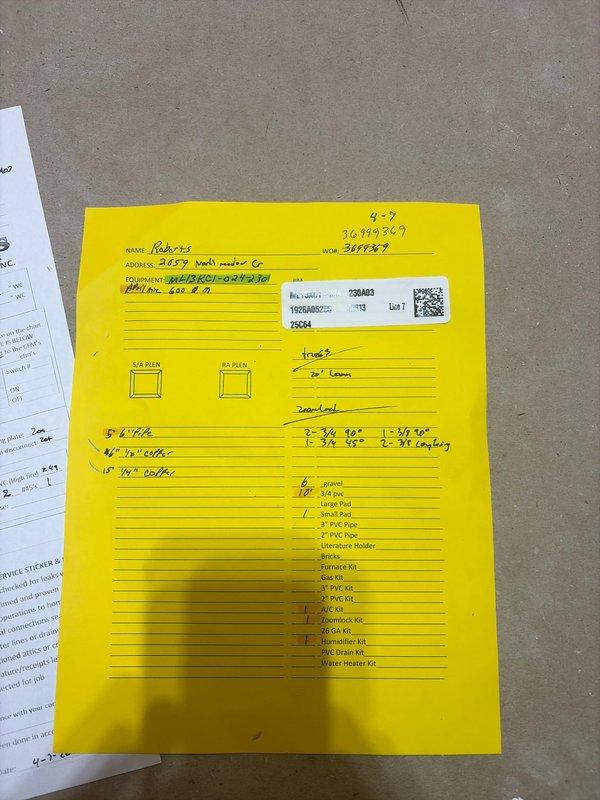 4-7
36999369
NAME: Roberts WO#: 3699369
ADDRESS: 2059 North meadow Cr
EQUIPMENT: ML13KC1-024-230
600
230A03
1926A05 Line 7
25C64
20'
S/A PLEN RA PLEN
zoomlock
5 6" Pipe 2- 3/4 90° 1- 3/8 90°
1/2" copper 1- 3/4 45° 2- 3/8 coupling
15' 1/4" copper
6 gravel
10' 3/4 pvc
Large Pad
1 Small Pad
3" PVC Pipe
2" PVC Pipe
Literature Holder
Bricks
Furnace Kit
Gas Kit
3" PVC Kit
2" PVC Kit
1 A/C Kit
1 Zoomlock Kit
26 GA Kit
1 Humidifier Kit
PVC Drain Kit
Water Heater Kit
INC.
" WC
" WC
e on the chart
E IS BELOW
to the CFM's
cfm's
Switch #
ON
OFF
ng plate:
n disconnect:
VC (High fire)
2 #45's 1
ERVICE STICKER &
checked for leaks
imed and proven
operations to hom
al connections se
ter lines or drains
gioned attics or c
ature/receipts le
ected for job
nce with your co
een done in acco
Date: 4-7-